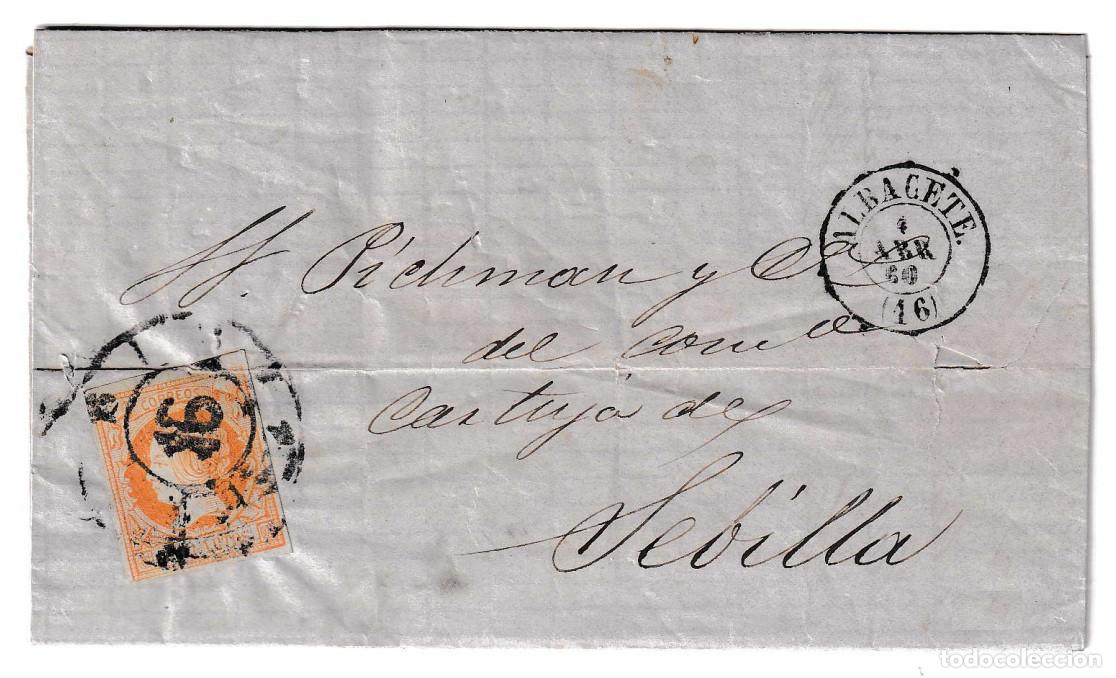 ALBACETE.
4
ABR
60
(16)
Pickman y Cª
del comercio
Cartuja de
Sevilla
CORREOS
16
todocoleccion